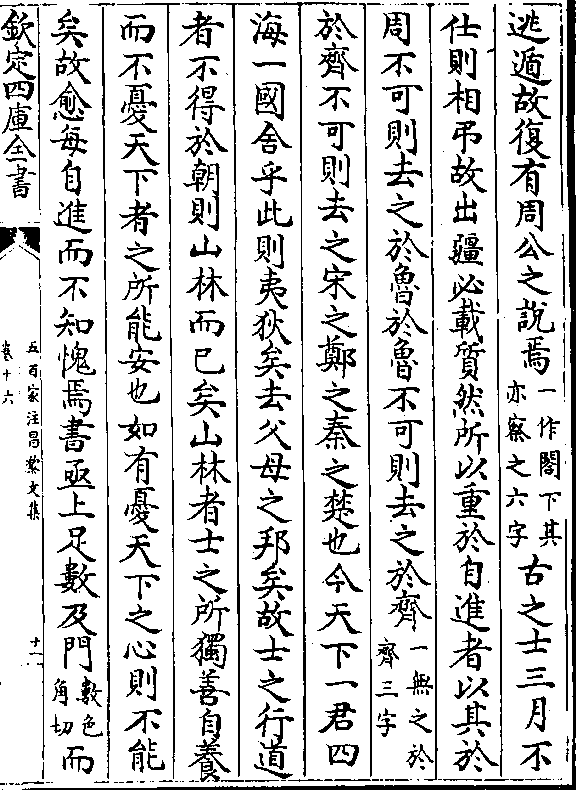 逃遁故復有周公之說焉一作閣下其亦察之六字古之士三月不
仕則相弔故出疆必載質然所以重於自進者以其於
周不可則去之於魯於魯不可則去之於齊一無之於齊三字
於齊不可則去之宋之鄭之秦之楚也今天下一君四
海一國舍乎此則夷狄矣去父母之邦矣故士之行道
者不得於朝則山林而已矣山林者士之所獨善自養
而不憂天下者之所能安也如有憂天下之心則不能
矣故愈每自進而不知愧焉書亟上足數及門數色角切而
欽定四庫全書
五百家注昌黎文集
卷十六
十一